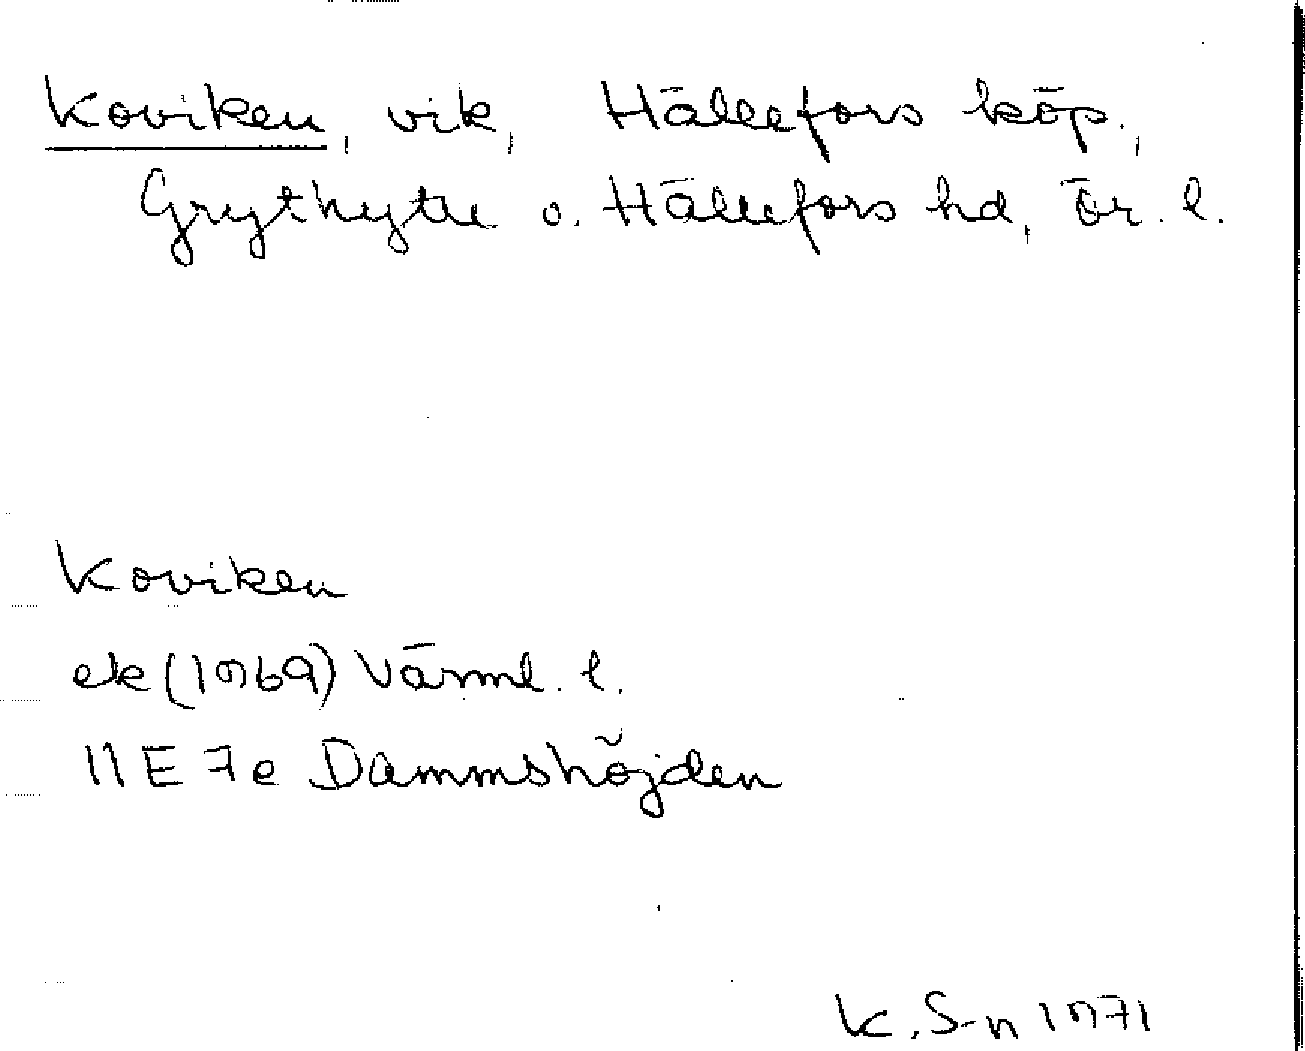 Koviken, vik, Hällefors köp.,
Grythytte o. Hällefors hd, Ör. l.
Koviken
ek (1969) Värml. l.
11E 7e Dammshöjden
K. S-n 1971